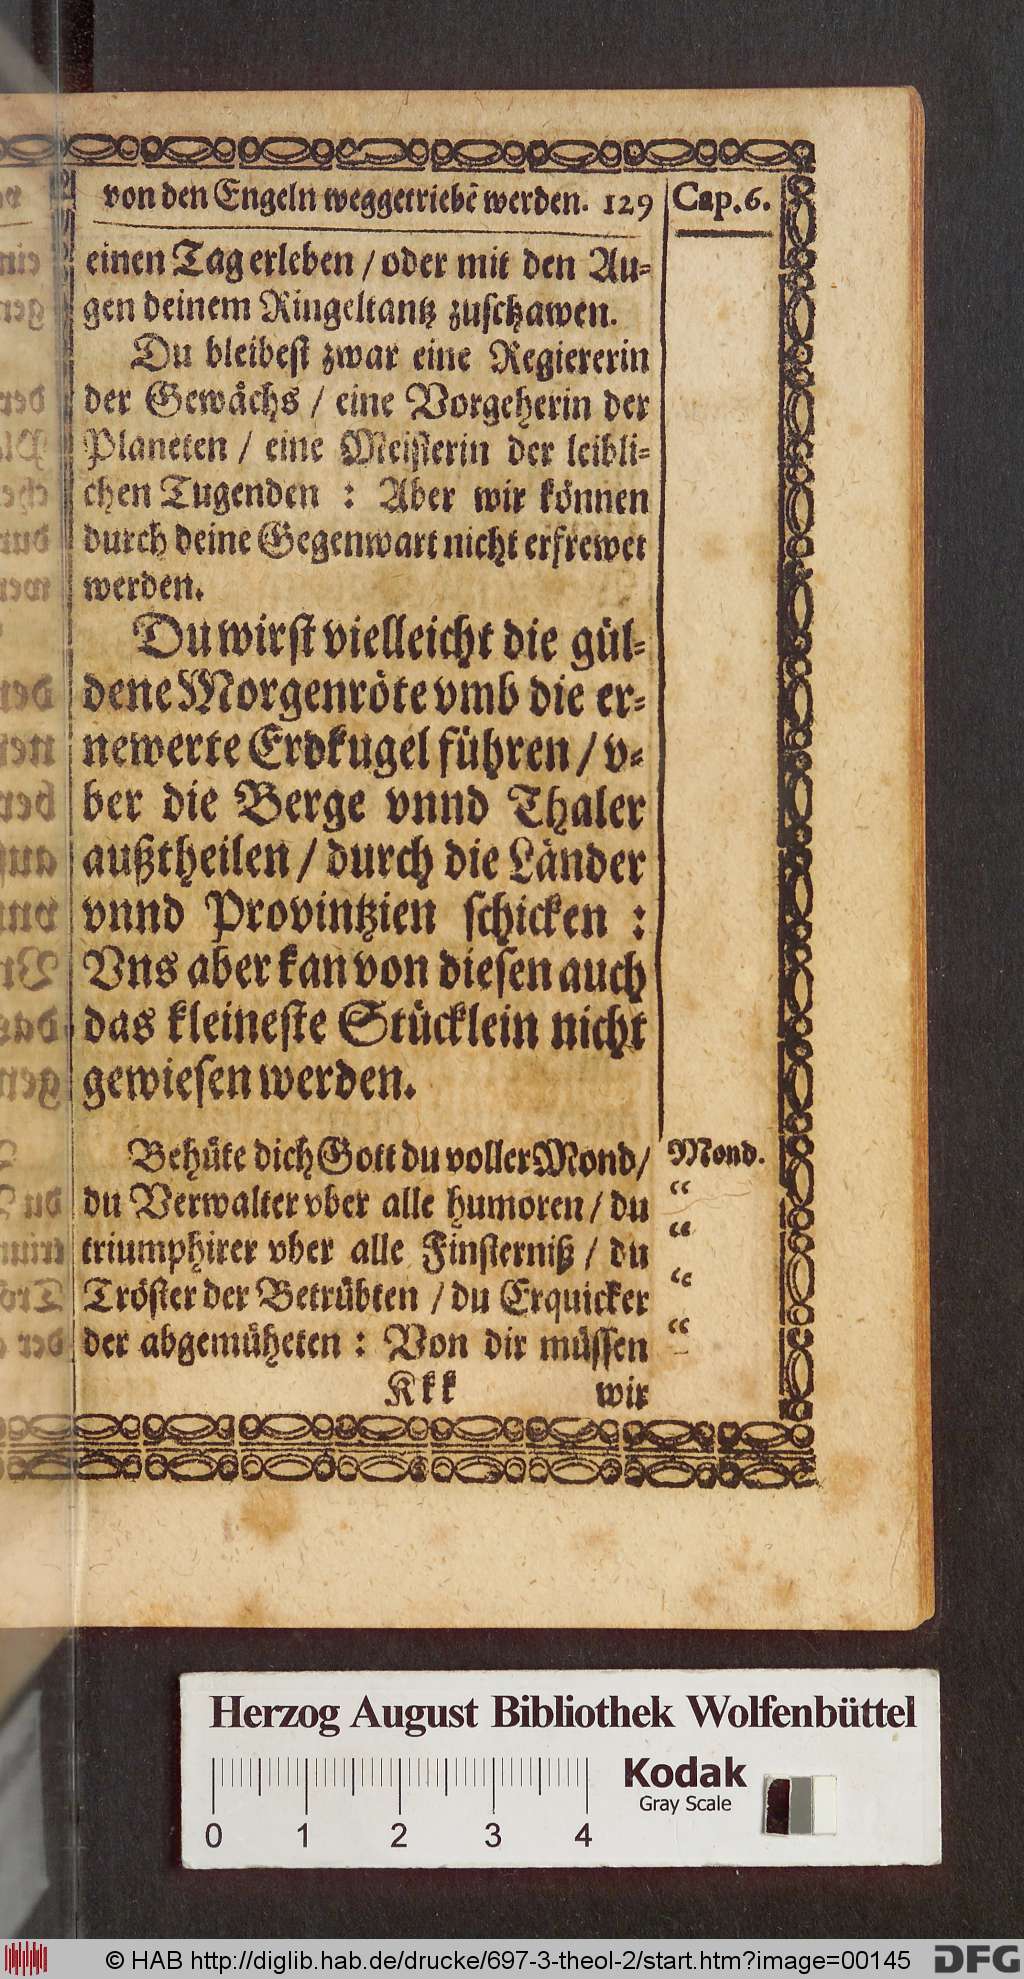 von den Engeln weggetriebē werden. 129 Cap. 6.
einen Tag erleben / oder mit den Au⸗
gen deinem Ringeltantz zuschawen.
Du bleibest zwar eine Regiererin
der Gewächs / eine Vorgeherin der
Planeten / eine Meisterin der leibli⸗
chen Tugenden : Aber wir können
durch deine Gegenwart nicht erfrewet
werden.
Du wirst vielleicht die gül⸗
dene Morgenröte vmb die er⸗
newerte Erdkugel führen / v⸗
ber die Berge vnnd Thaler
außtheilen / durch die Länder
vnnd Provintzien schicken :
Vns aber kan von diesen auch
das kleineste Stücklein nicht
gewiesen werden.
Behüte dich Gott du voller Mond / Mond.
du Verwalter vber alle humoren / du “
triumphirer vber alle Finsterniß / du “
Tröster der Betrübten / du Erquicker “
der abgemüheten : Von dir müssen “
Kkk wir
Herzog August Bibliothek Wolfenbüttel
Kodak
Gray Scale
0 1 2 3 4
© HAB http://diglib.hab.de/drucke/697-3-theol-2/start.htm?image=00145 DFG